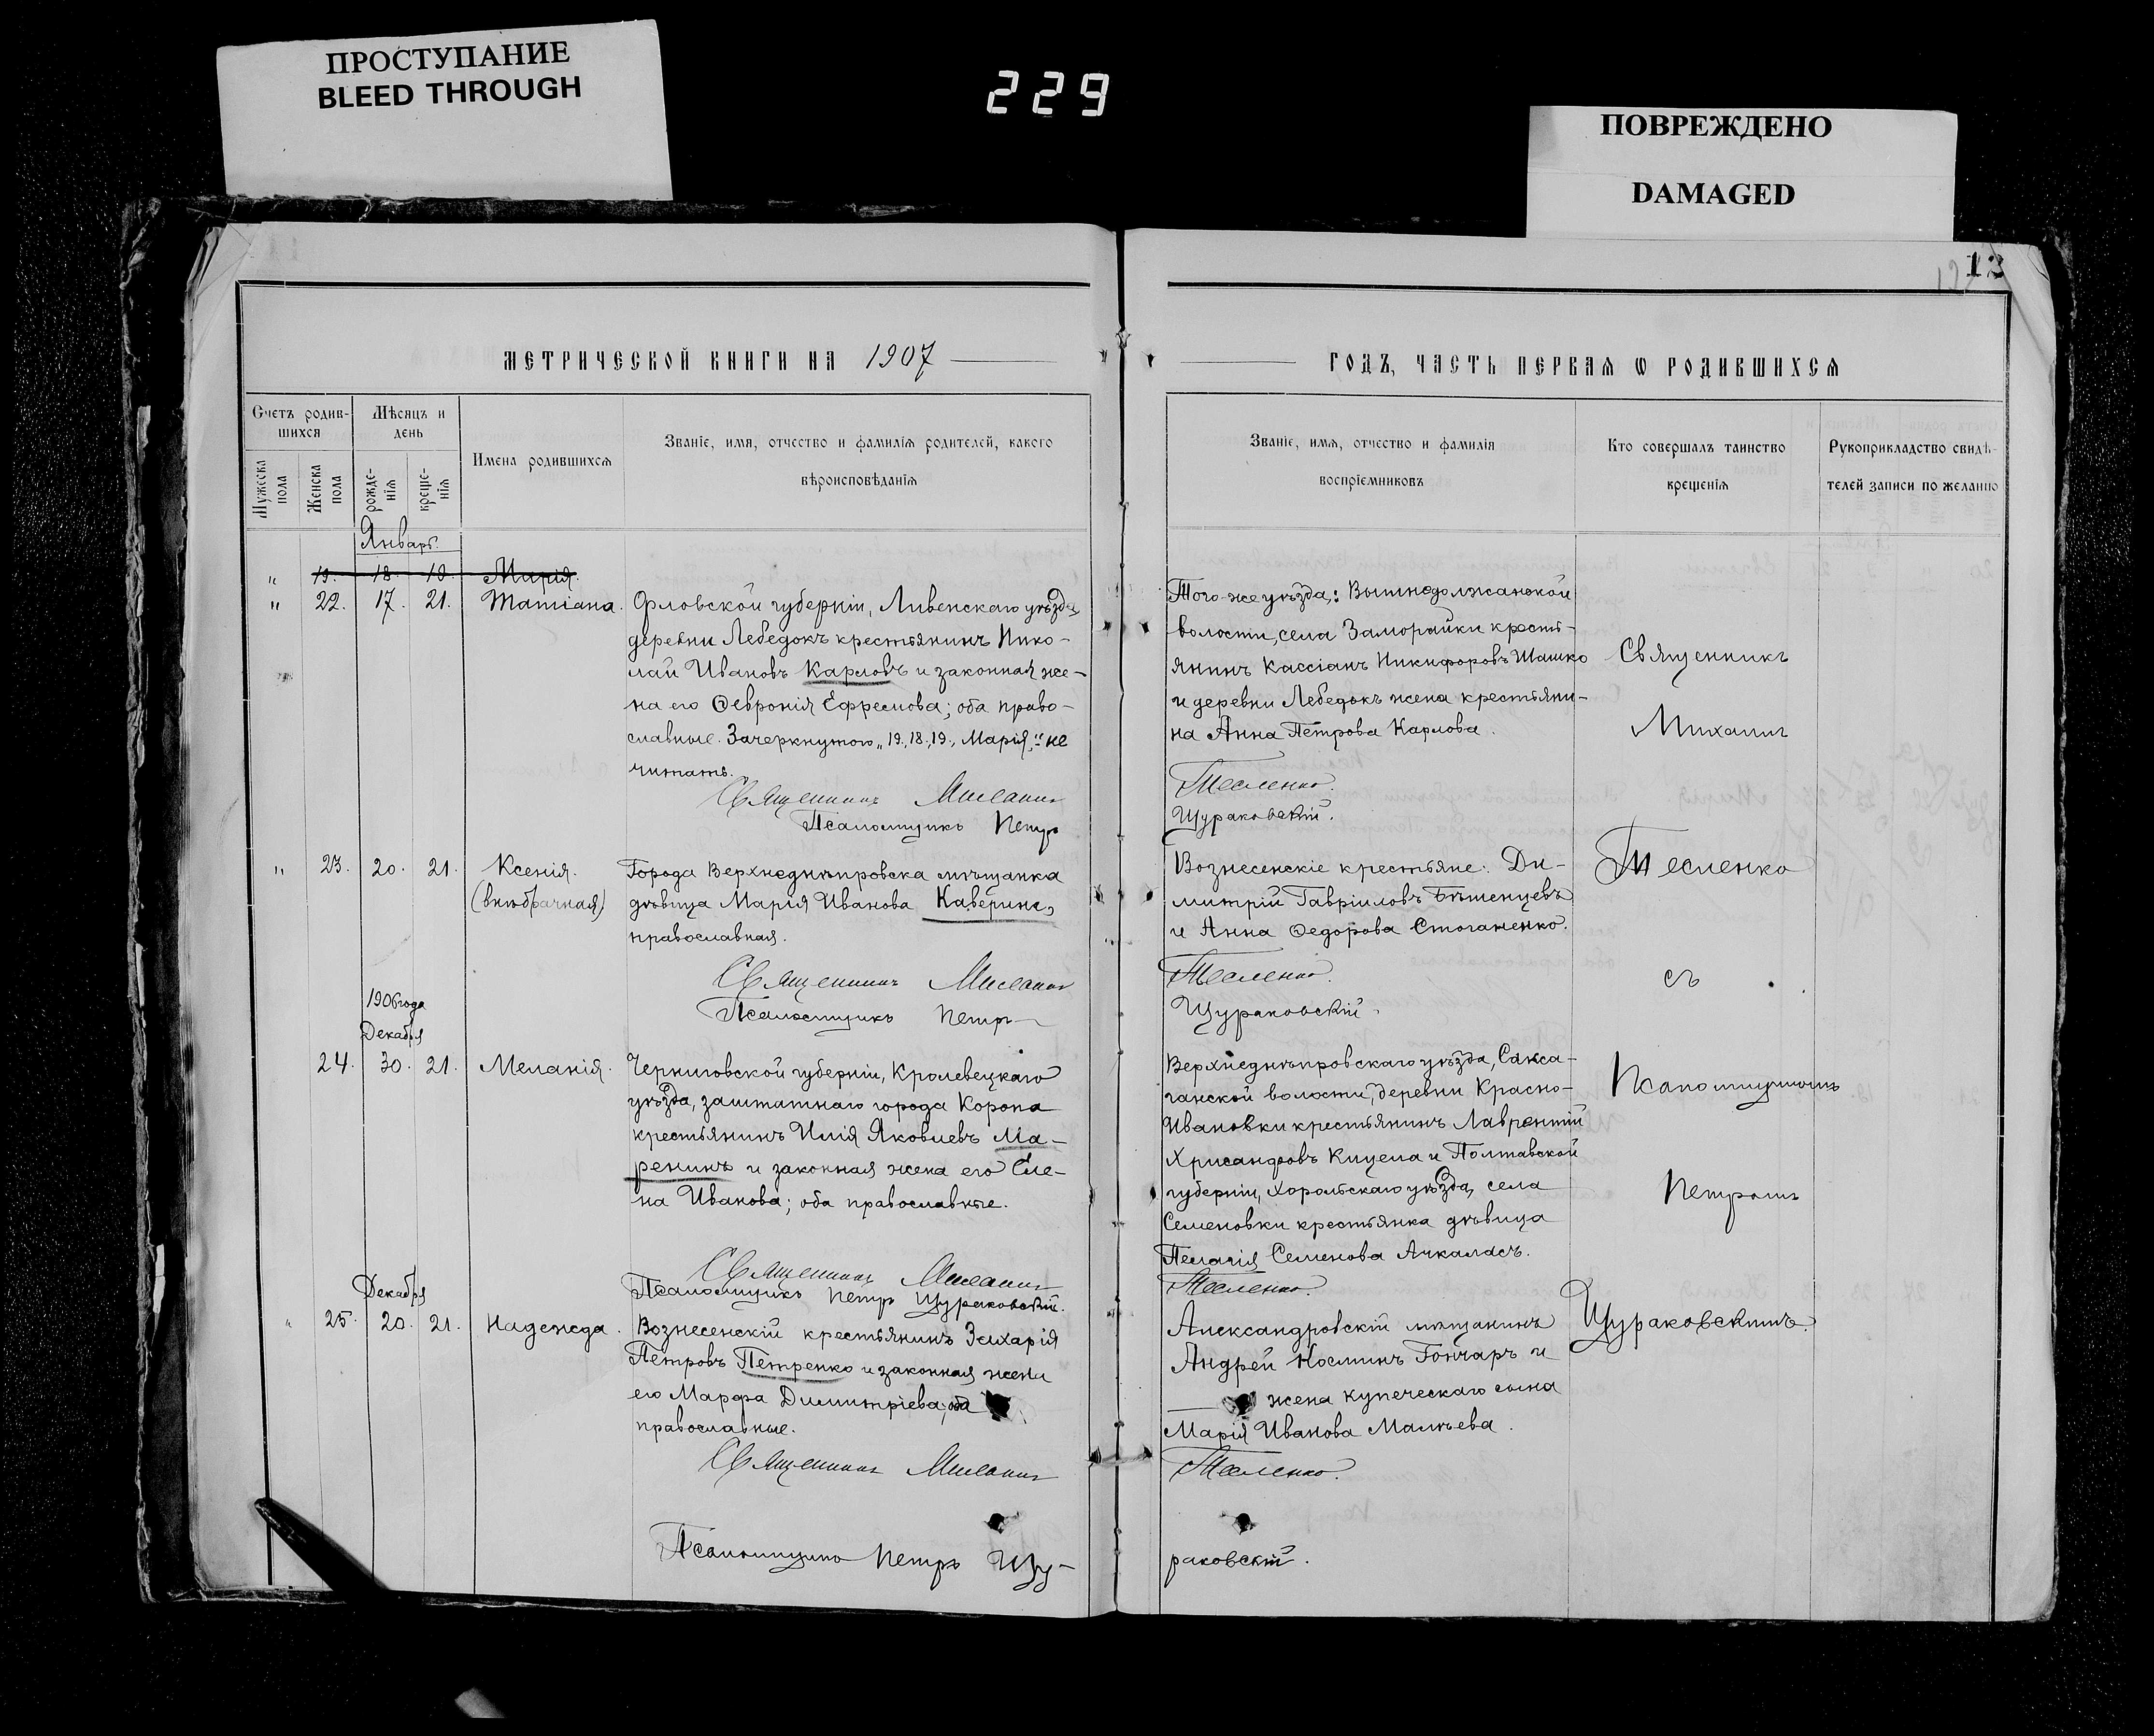 ПРОСТУПАНИЕ
BLEED THROUGH
229
ПОВРЕЖДЕНО
DAMAGED
13
МЕТРИЧЕСКОЙ КНИГИ НА 1907
Счетъ родив-
шихся
Мѣсяцъ и
день
Мужеска
пола
Женска
пола
рожде-
нія
креще-
нія
Имена родившихся
Званіе, имя, отчество и фамилія родителей, какого
вѣроисповѣданія
Январь.
" 19. 18. 19. Марія.
" 22. 17. 21. Татіана. Орловской губерніи, Ливенскаго уѣзда,
деревни Лебедокъ крестьянинъ Нико-
лай Ивановъ Карловъ и законная же-
на его Ѳевронія Ефремова; оба право-
славные. Зачеркнутого „19, 18, 19, Марія," не
читать.
Священникъ Михаилъ
Псаломщикъ Петръ
" 23. 20. 21. Ксенія. Города Верхнеднѣпровска мѣщанка
(внѣбрачная) дѣвица Марія Иванова Каверина,
православная.
Священникъ Михаилъ
Псаломщикъ Петръ
1906 года
Декабря
24. 30. 21. Меланія. Черниговской губерніи, Кролевецкаго
уѣзда, заштатнаго города Коропа
крестьянинъ Илія Яковлевъ Ма-
ренинъ и законная жена его Еле-
на Иванова; оба православные.
Священникъ Михаилъ
Псаломщикъ Петръ Щураковскій.
Декабря
" 25. 20. 21. Надежда. Вознесенскій крестьянинъ Захарія
Петровъ Петренко и законная жена
его Марфа Димитріева; оба
православные.
Священникъ Михаилъ
Псаломщикъ Петръ Щу-
ГОДЪ, ЧАСТЬ ПЕРВАЯ Ѡ РОДИВШИХСЯ
Званіе, имя, отчество и фамилія
воспріемниковъ
Кто совершалъ таинство
крещенія
Рукоприкладство свидѣ-
телей записи по желанію
Того-же уѣзда,: Вышнедолжанской
волости, села Заморайки кресть-
янинъ Кассіанъ Никифоровъ Машко
и деревни Лебедокъ жена крестьяни-
на Анна Петрова Карлова.
Тесленко.
Щураковскій.
Вознесенскіе крестьяне: Ди-
митрій Гавріиловъ Бѣшенцевъ
и Анна Ѳедорова Стоганенко.
Тесленко.
Щураковскій.
Верхнеднѣпровскаго уѣзда, Сакса-
ганской волости, деревни Красно-
Ивановки крестьянинъ Лаврентій
Хрисанфовъ Кицела и Полтавской
губерніи, Хорольскаго уѣзда, села
Семеновки крестьянка дѣвица
Пелагія Семенова Ачкалась.
Тесленко.
Александровскій мѣщанинъ
Андрей Косминъ Гончаръ и
жена купеческаго сына
Марія Иванова Малѣева.
Тесленко.
раковскій.
Священникъ
Михаилъ
Тесленко
съ
Псаломщикомъ
Петромъ
Щураковскимъ.